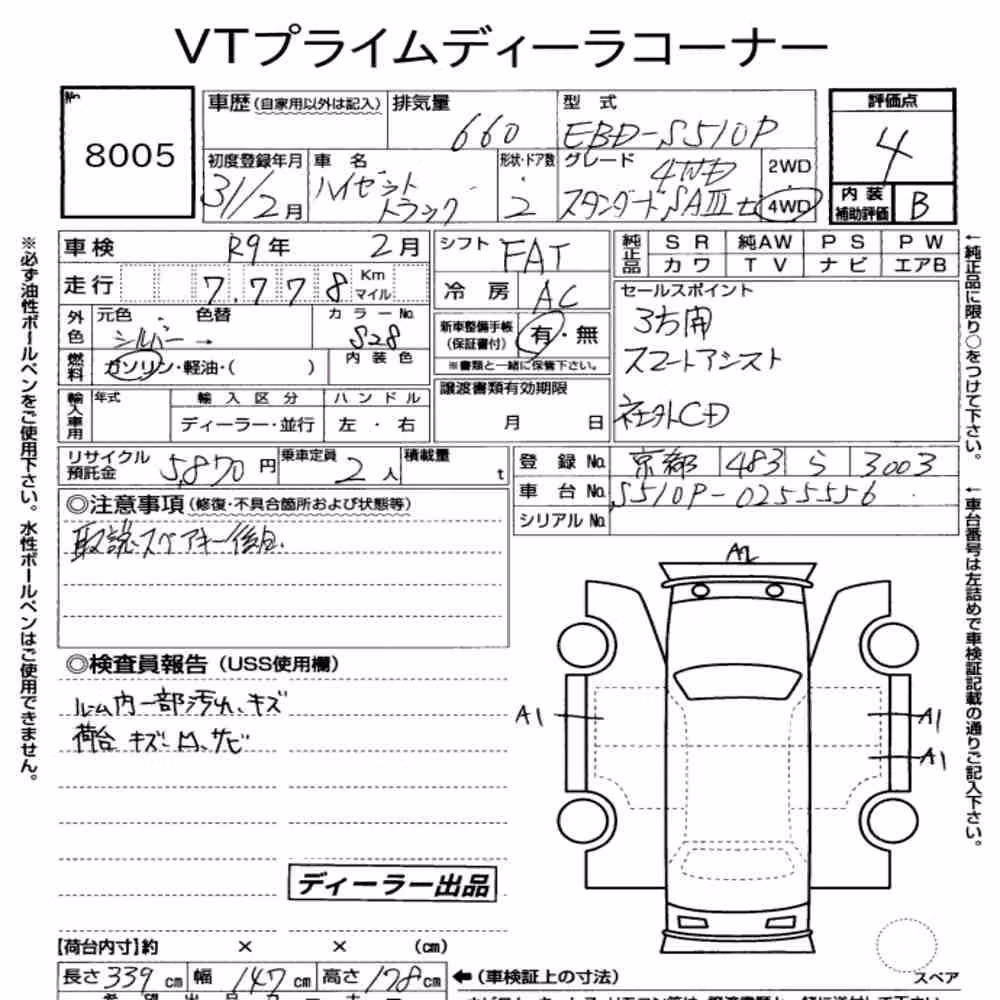 VTプライムディーラコーナー
No.
8005
車歴 (自家用以外は記入) 排気量 660 型式 EBD-S510P
初度登録年月 31/2月 車名 ハイゼットトラック 形状・ドア数 2 グレード 4WD スタンダードSAⅢt 2WD 4WD
評価点
4
内装補助評価 B
車検 R9年 2月
シフト FAT
純正品 SR 純AW PS PW
カワ TV ナビ エアB
走行 7.778 Km マイル
冷房 AC
セールスポイント
3方開
スマートアシスト
社外CD
外色 元色 シルバー → 色替 カラーNo. S28
新車整備手帳(保証書付) 有・無
※書類と一緒に保管下さい。
燃料 ガソリン・軽油・( ) 内装色
譲渡書類有効期限
月 日
輸入車用 年式 輸入区分 ハンドル
ディーラー・並行 左・右
リサイクル預託金 5,870円 乗車定員 2人 積載量 t
登録No. 京都 483 ら 3003
車台No. S510P-0255556
シリアルNo.
◎注意事項 (修復・不具合箇所および状態等)
取説・スペアキー後日.
◎検査員報告 (USS使用欄)
ルーム内一部汚れ、キズ
荷台 キズ、凹、サビ
ディーラー出品
A2
A1
A1
A1
スペア
【荷台内寸】約 × × (cm)
長さ339cm 幅147cm 高さ178cm
←(車検証上の寸法)
※必ず油性ボールペンをご使用下さい。水性ボールペンはご使用できません。
←純正品に限り○をつけて下さい。
←車台番号は左詰めで車検証記載の通りご記入下さい。